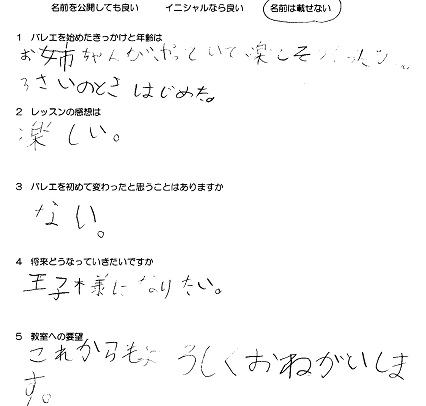 名前を公開しても良い イニシャルなら良い 名前は載せない
1 バレエを始めたきっかけと年齢は
お姉ちゃんがやっていて楽しそうだった。
3さいのときはじめた。
2 レッスンの感想は
楽しい。
3 バレエを初めて変わったと思うことはありますか
ない。
4 将来どうなっていきたいですか
王子様になりたい。
5 教室への要望
これからもよろしくおねがいしま
す。